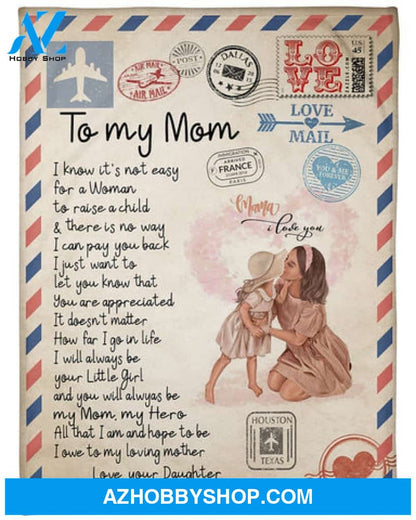 Hobby Shop
AIR MAIL
AIR MAIL
POST
DALLAS
LOVE
45
To my Mom
LOVE
MAIL
IMMIGRATION
ARRIVED
FRANCE
PARIS
YOU & ME
FOREVER
I know it's not easy
for a Woman
to raise a child
& there is no way
I can pay you back
I just want to
let you know that
You are appreciated
It doesn't matter
How far I go in life
I will always be
your Little Girl
and you will alwyas be
my Mom, my Hero
All that I am and hope to be
I owe to my loving mother
Love, your Daughter
Mama
i love you
HOUSTON
TEXAS
AZHOBBYSHOP.COM